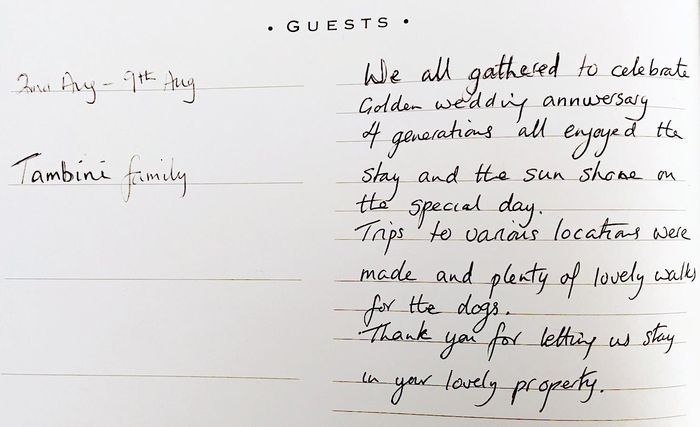 • GUESTS •
2nd Aug - 9th Aug
Tambini family
We all gathered to celebrate
Golden wedding anniversary
4 generations all enjoyed the
stay and the sun shone on
the special day.
Trips to various locations were
made and plenty of lovely walks
for the dogs.
Thank you for letting us stay
in your lovely property.